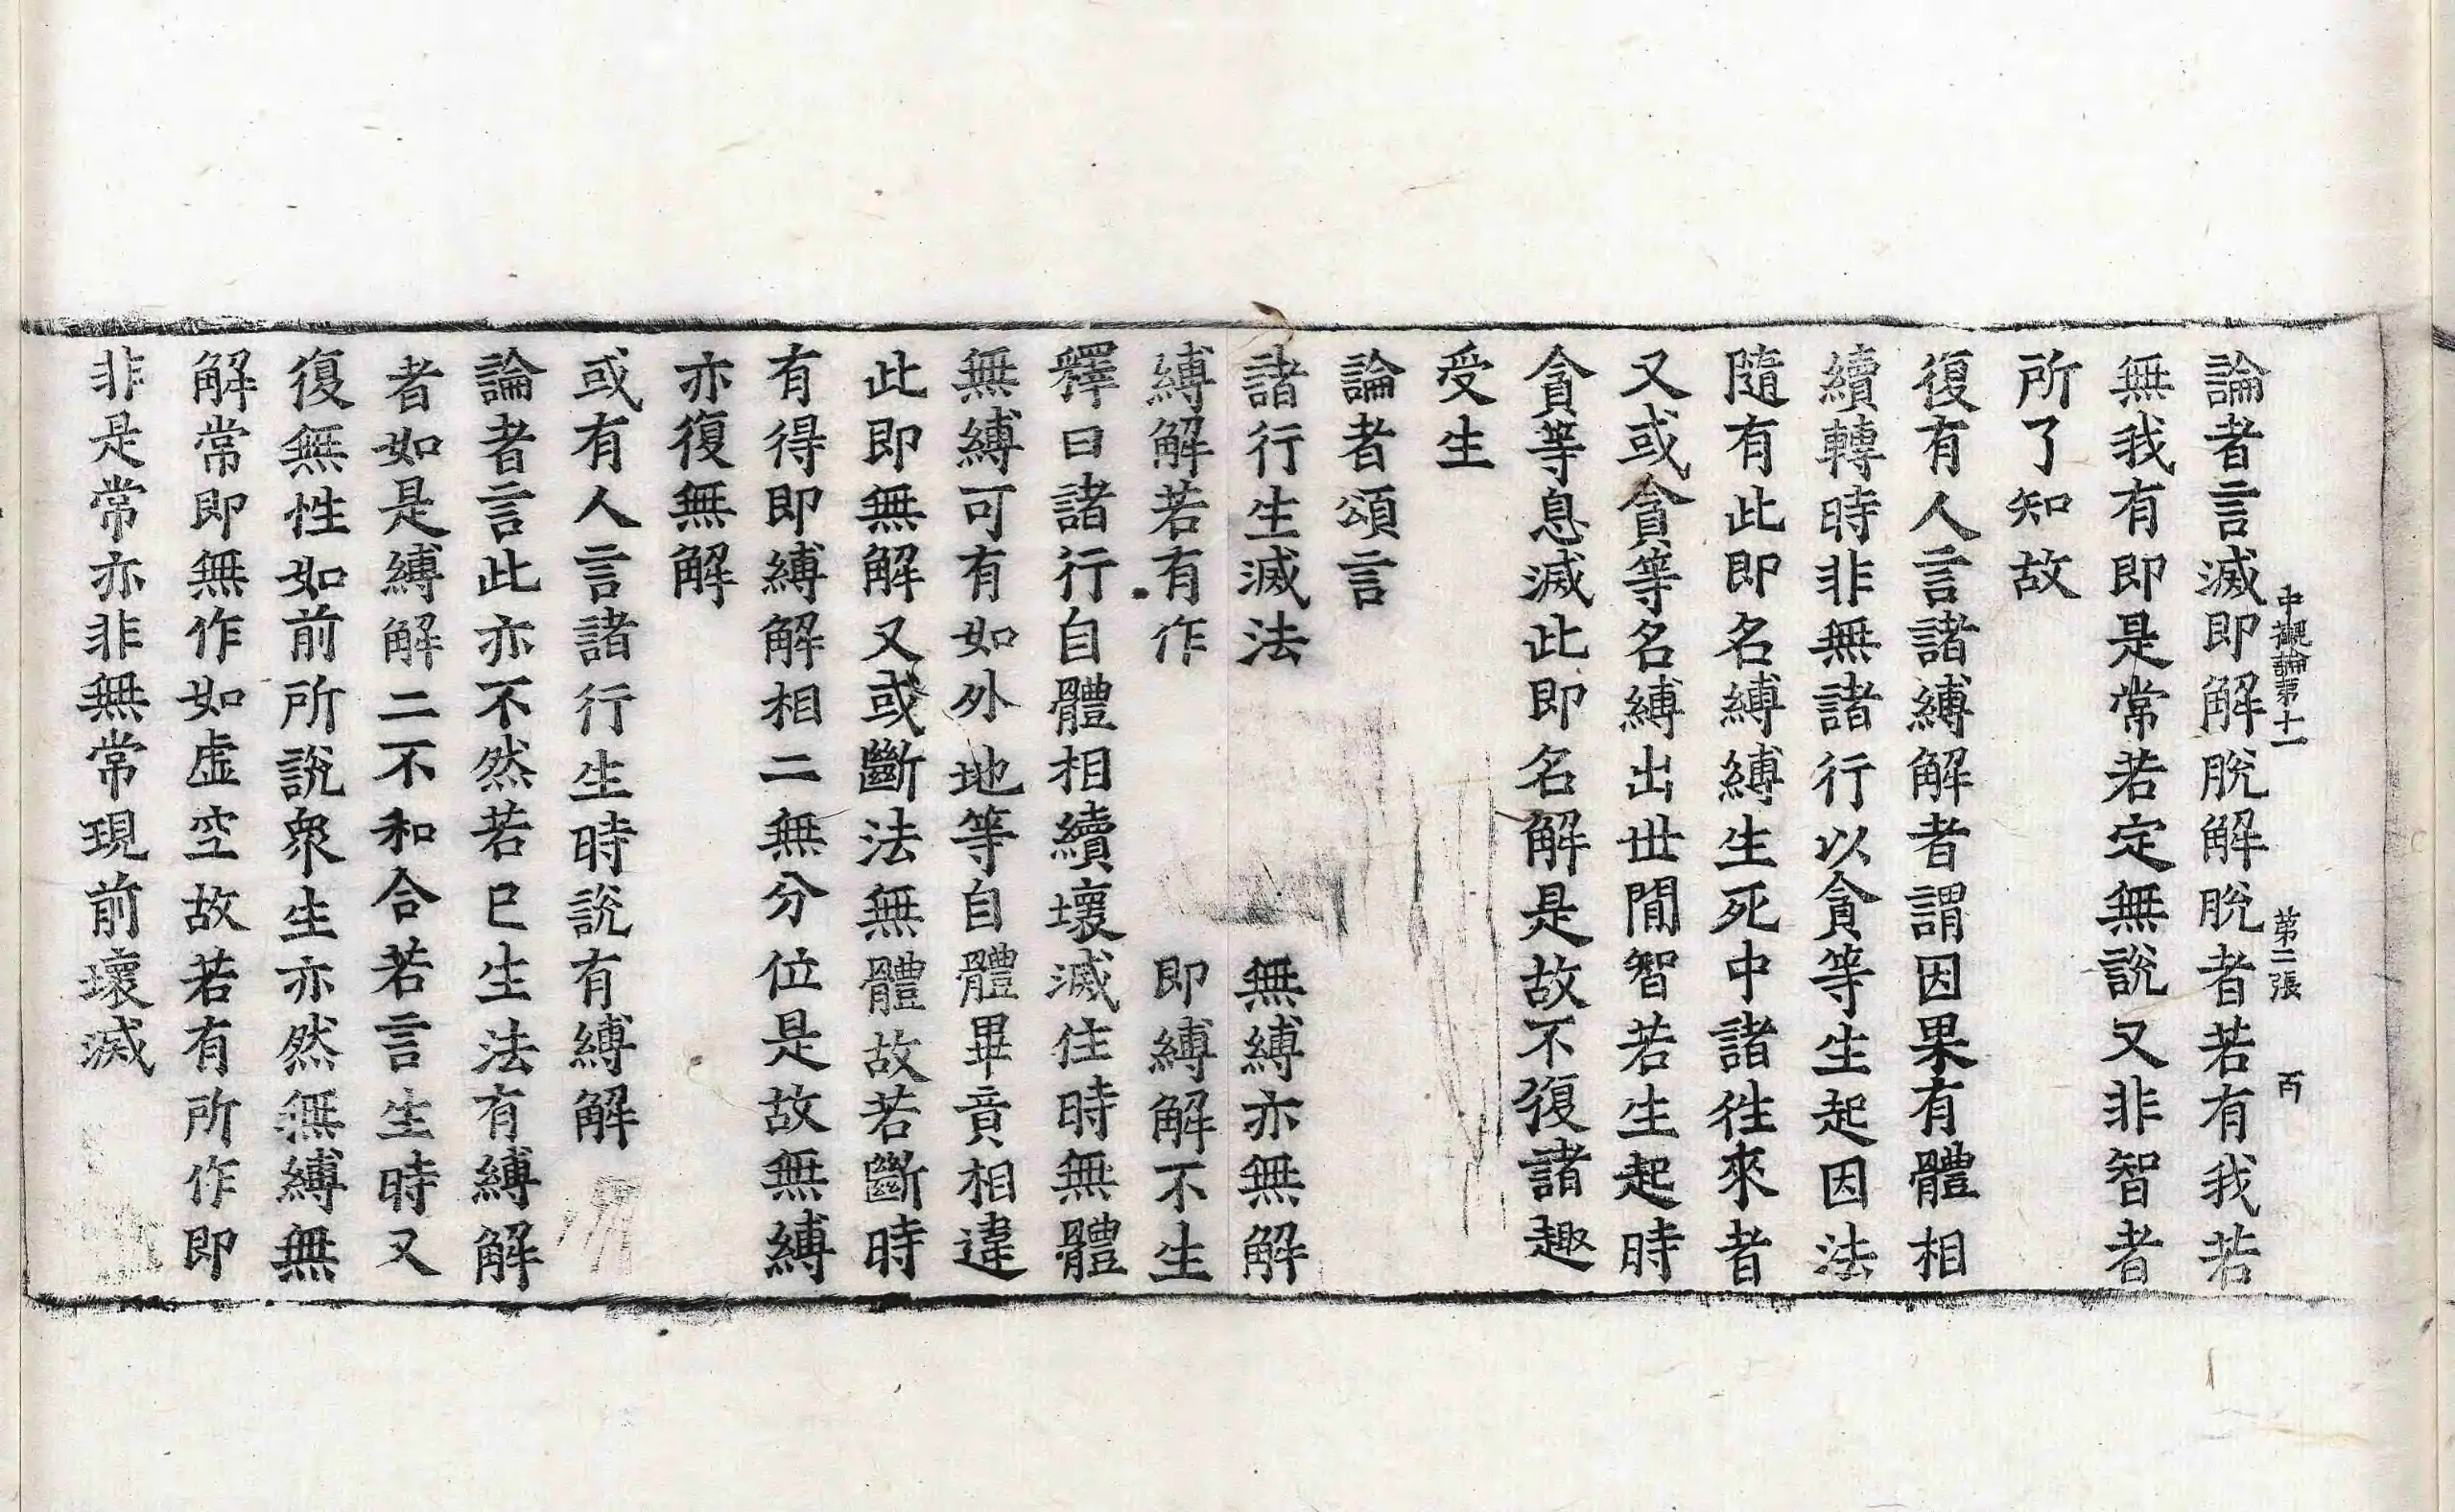 論者言滅即解脫解脫者若有我若
中觀論第十一 第二張 丙
無我有即是常若定無說又非智者
所了知故
復有人言諸縛解者謂因果有體相
續轉時非無諸行以貪等生起因法
隨有此即名縛縛生死中諸徃來者
又或貪等名縛出世間智若生起時
貪等息滅此即名解是故不復諸趣
受生
論者頌言
諸行生滅法 無縛亦無解
縛解若有作 即縛解不生
釋曰諸行自體相續壞滅住時無體
無縛可有如外地等自體畢竟相違
此即無解又或斷法無體故若斷時
有得即縛解相二無分位是故無縛
亦復無解
或有人言諸行生時說有縛解
論者言此亦不然若已生法有縛解
者如是縛解二不和合若言生時又
復無性如前所說衆生亦然無縛無
解常即無作如虛空故若有所作即
非是常亦非無常現前壞滅